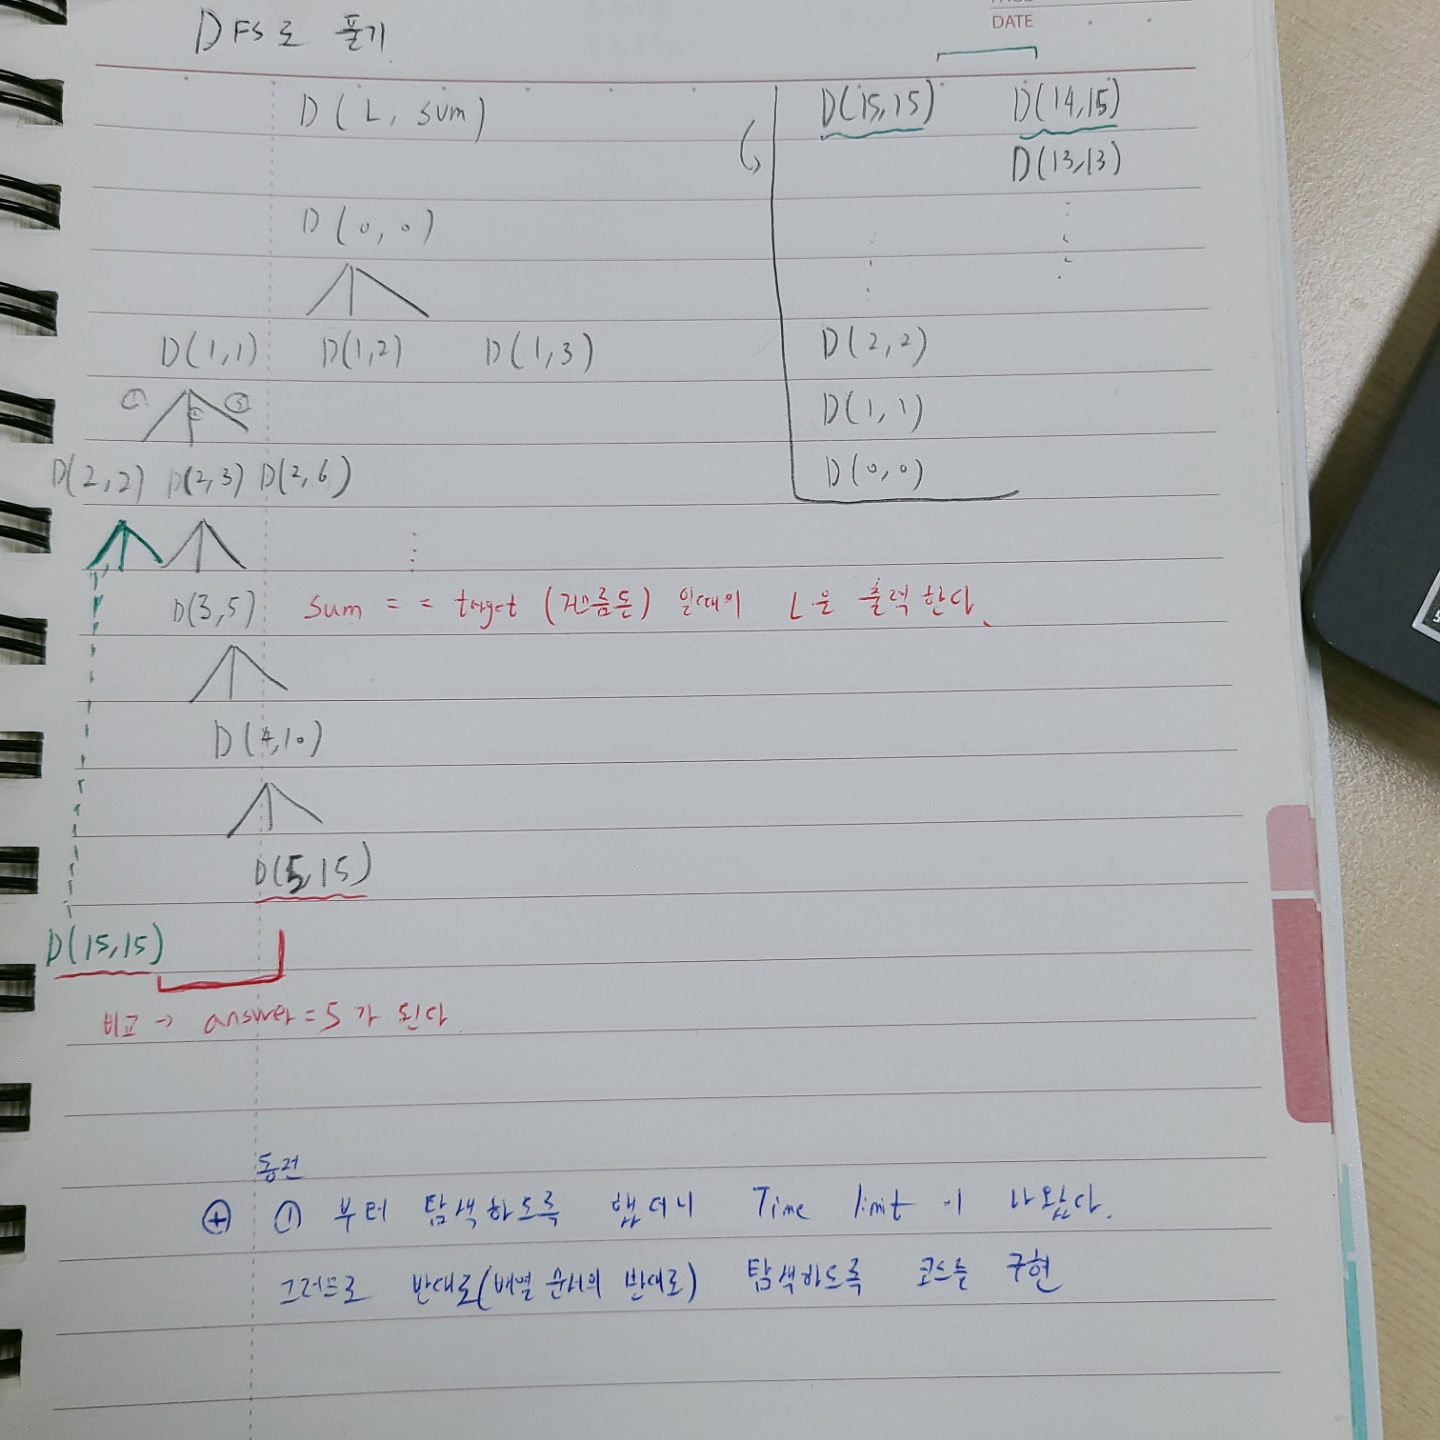 DFS로 풀기
DATE
D(L, sum)
D(0,0)
D(1,1) D(1,2) D(1,3)
① ② ③
D(2,2) D(2,3) D(2,6)
D(3,5)
sum == target (거스름돈) 일때의 L을 출력한다.
D(4,10)
D(5,15)
D(15,15)
비교 → answer = 5가 된다
D(15,15) D(14,15)
D(13,13)
D(2,2)
D(1,1)
D(0,0)
동전
⊕ ① 부터 탐색하도록 했더니 Time limit이 나왔다.
그러므로 반대로(배열 순서의 반대로) 탐색하도록 코드를 구현